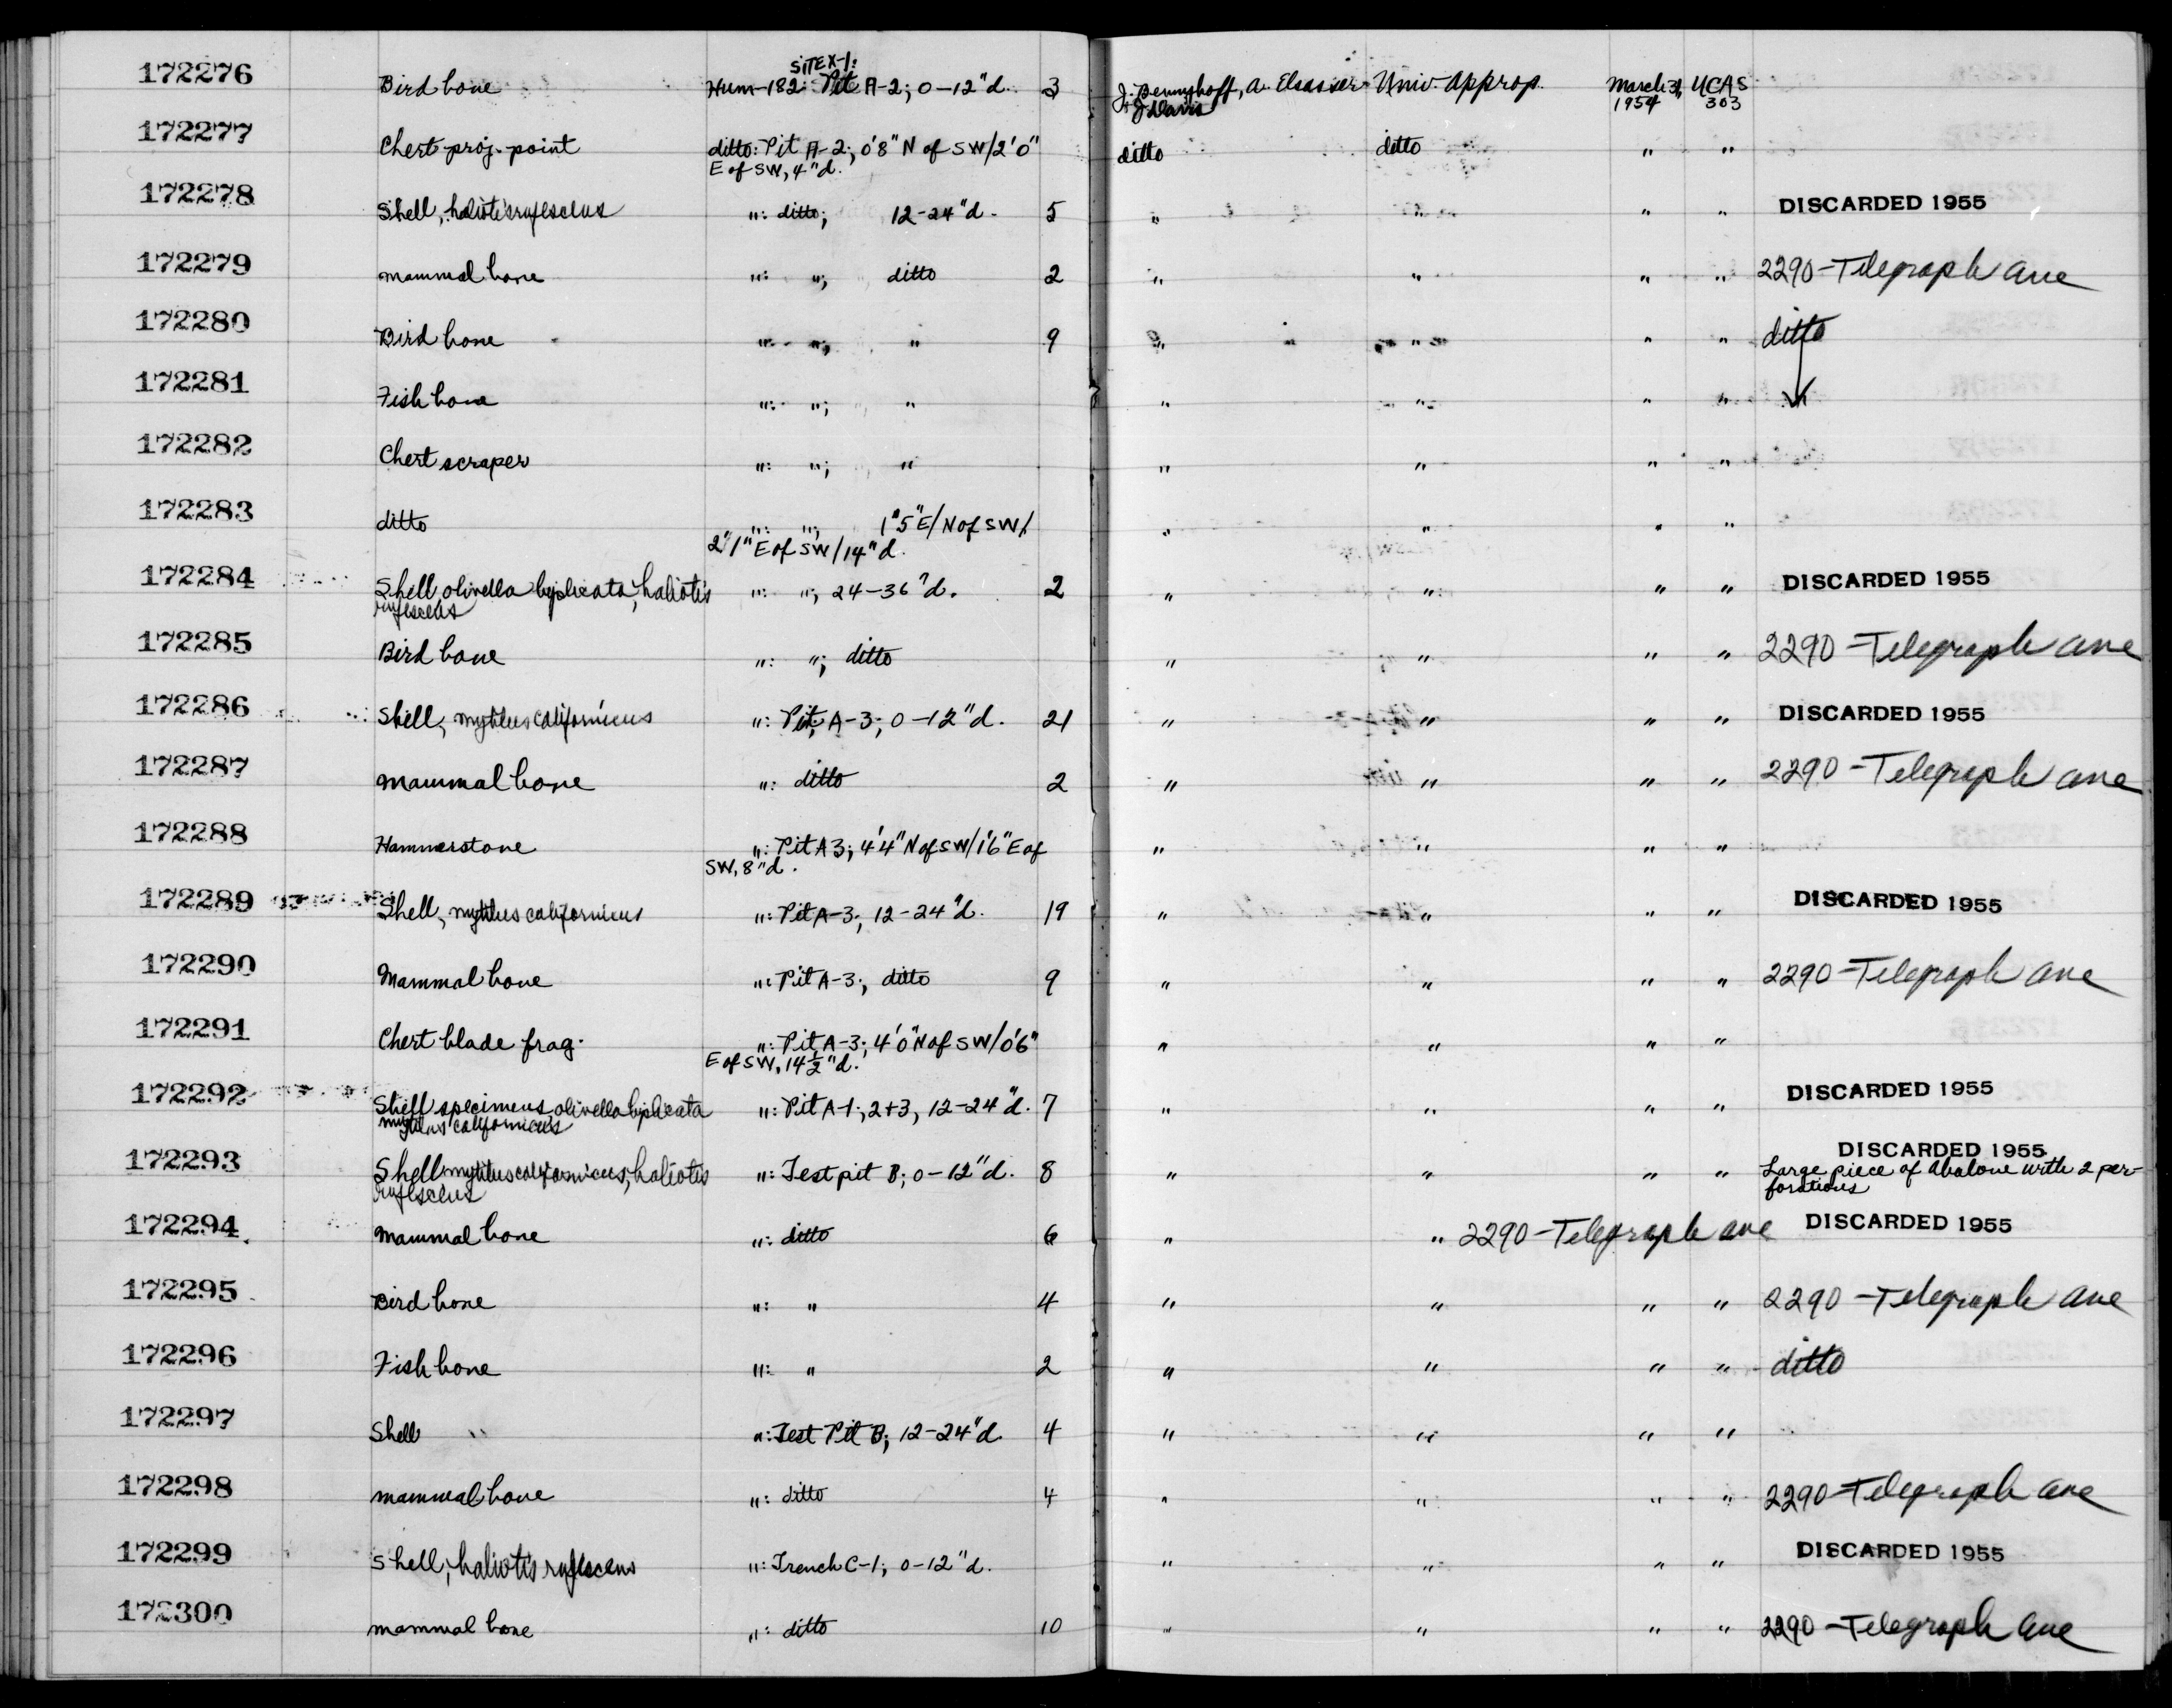 SITE X-1:
172276 Bird bone Hum-182: Pit A-2; 0-12"d. 3 J. Bennyhoff, A. Elsasser Univ. Approp. March 31, UCAS
& J Davis 1954 303
172277 Chert proj. point ditto: Pit A-2; 0'8" N of SW/2'0" ditto ditto " "
E of SW, 4"d.
172278 Shell, haliotis rufescens ": ditto; 12-24"d. 5 " " " DISCARDED 1955
172279 mammal bone ": "; ditto 2 " " " " 2290-Telegraph Ave
172280 Bird bone ": "; " 9 " " " " ditto
172281 Fish bone ": "; " " " " "
172282 Chert scraper ": "; " " " " "
172283 ditto ": "; 1'5"E/N of SW/ " " " "
2'1" E of SW/14"d.
172284 Shell, olivella biplicata, haliotis ": "; 24-36"d. 2 " " " " DISCARDED 1955
rufescens
172285 Bird bone ": "; ditto " " " " 2290-Telegraph Ave
172286 Shell, mytilus californicus ": Pit A-3; 0-12"d. 21 " " " " DISCARDED 1955
172287 mammal bone ": ditto 2 " " " " 2290-Telegraph Ave
172288 Hammerstone ": Pit A3; 4'4" N of SW/1'6" E of " " " "
SW, 8"d.
172289 Shell, mytilus californicus ": Pit A-3; 12-24"d. 19 " " " " DISCARDED 1955
172290 Mammal bone ": Pit A-3; ditto 9 " " " " 2290-Telegraph Ave
172291 Chert blade frag. ": Pit A-3; 4'0" N of SW/0'6" " " " "
E of SW, 14½"d.
172292 Shell specimens, olivella biplicata ": Pit A-1, 2+3, 12-24"d. 7 " " " " DISCARDED 1955
mytilus californicus
DISCARDED 1955
172293 Shell mytilus californicus, haliotis ": Test pit B; 0-12"d. 8 " " " " Large piece of abalone with 2 per-
rufescens forations
172294 mammal bone ": ditto 6 " " 2290-Telegraph Ave DISCARDED 1955
172295 Bird bone ": " 4 " " " " 2290-Telegraph Ave
172296 Fish bone ": " 2 " " " " ditto
172297 Shell ": Test Pit B; 12-24"d 4 " " " "
172298 mammal bone ": ditto 4 " " " " 2290-Telegraph Ave
172299 Shell, haliotis rufescens ": Trench C-1; 0-12"d. " " " " DISCARDED 1955
172300 mammal bone ": ditto 10 " " " " 2290-Telegraph Ave